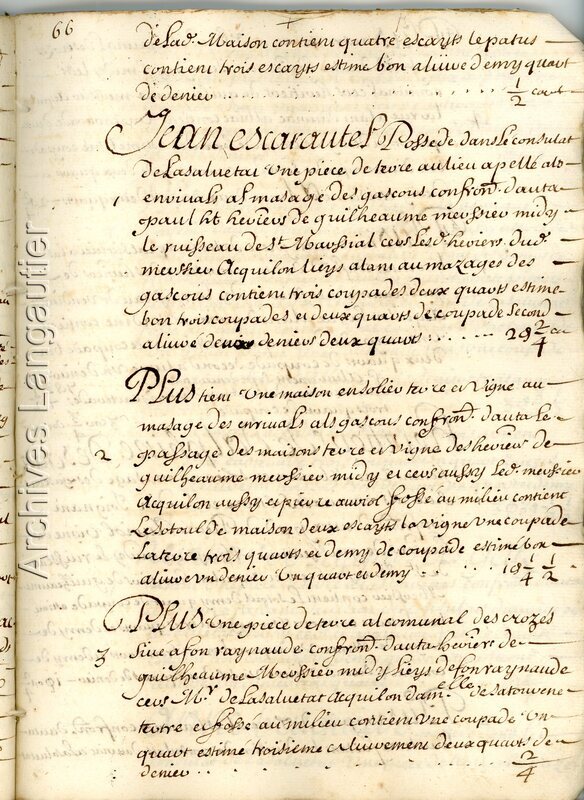 66
de Lad. Maison contient quatre escayts le patus
contient trois escayts estimé bon alivré demy quart
de denier ........ 1/2 cart
Jean escarautel Possede dans Le consulat
de Lasalvetat Une piece de terre au lieu apellé als
1 envivals al masage des gascous confron. d'auta
paul ht heriers de guilheaume meussier midy
le ruisseau de St Marssial cers Lesd. heriers dud.
meussier Acquilon lieys alant au mazages des
gascous contient trois coupades deux quarts estimé
bon trois coupades et deux quarts de coupade second
alivré deux deniers deux quarts ...... 2d 2/4
PLUS tient Une maison en solier terre et Vigne au
masage des envivals als gascous confron. d'auta Le
2 passage des maisons terre et vigne des heriers de
guilheaume meussier midy et cers aussy Led. meussier
Acquilon aussy et pierre fossé au milieu contient
Le sotoul de maison deux escayts la vigne Une coupade
La terre trois quarts et demy de coupade estimé bon
alivré Un denier Un quart et demy .. 1d 1/4 1/2
PLUS Une piece de terre al comunal des crozés
3 sive a fon raynaude confron. d'auta heriers de
guilheaume Meussier midy lieys de fon raynaude
cers Mr. de Lasalvetat Acquilon damelle de
tertre et fossé au milieu contient Une coupade Un
quart estimé troisieme alivrement deux quarts de
denier ........ 2/4
Archives Langautier